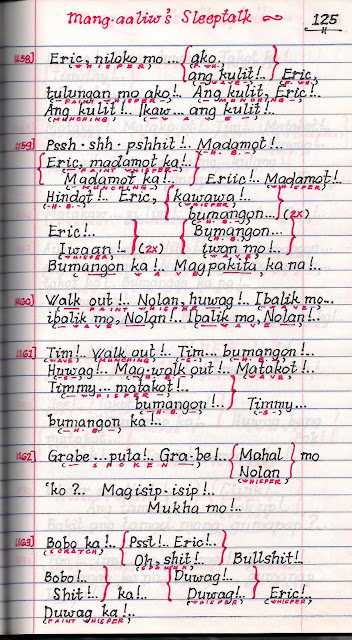 Mang-aaliw's Sleeptalk
125
158) Eric, niloko mo... ako..
(WHISPER) (F. WH.)
ang kulit!.. Eric,
(F. WH.)
tulungan mo ako!.. Ang kulit, Eric!..
(FAINT WHISPER) (MUNCHING)
Ang kulit!.. Ikaw... ang kulit!..
(MUNCHING) (WAVE)
159) Pssh - shh - pshhit!.. Madamot!..
(H.B.)
Eric, madamot ka!..
(FAINT WHISPER)
Madamot ka!.. Eriic!.. Madamot!..
(MUNCHING) (WHISPER)
Hindot!.. Eric, kawawa!..
(H.B.) (WHISPER)
bumangon... (2x)
(H.B.)
Eric!.. Bumangon...
(H.B.)
Iwaan!.. (2x) iwan mo!..
(WHISPER) (WAVE)
Bumangon ka!.. Magpakita, ka na!..
(WAVE)
160) Walk out!.. Nolan, huwag!.. Ibalik mo...
(FAINT WHISPER) (WAVE)
ibalik mo, Nolan!.. Ibalik mo, Nolan!..
(WAVE) (WAVE)
161) Tim!.. Walk out!.. Tim... bumangon!..
(WAVE) (MUNCHING) (S) (H.B.)
Huwag!.. Mag-walk out!.. Matakot!..
(S) (H.B.) (WAVE)
Timmy... matakot!..
(WHISPER)
bumangon!.. Timmy...
(H.B.) (S)
bumangon ka!..
(H.B.)
162) Grabe... puta!.. Gra-be!.. Mahal mo
(SPOKEN)
Nolan
(WHISPER)
'ko?.. Magisip-isip!..
Mukha mo!..
163) Bobo ka!.. Psst!.. Eric!..
(SCRATCH)
Oh, shit!.. Bullshit!..
(SPOKEN)
Bobo!.. Duwag!..
Shit!.. ka!.. Duwag!.. Eric!..
(WHISPER) (WHISPER)
Duwag ka!..
(FAINT WHISPER)